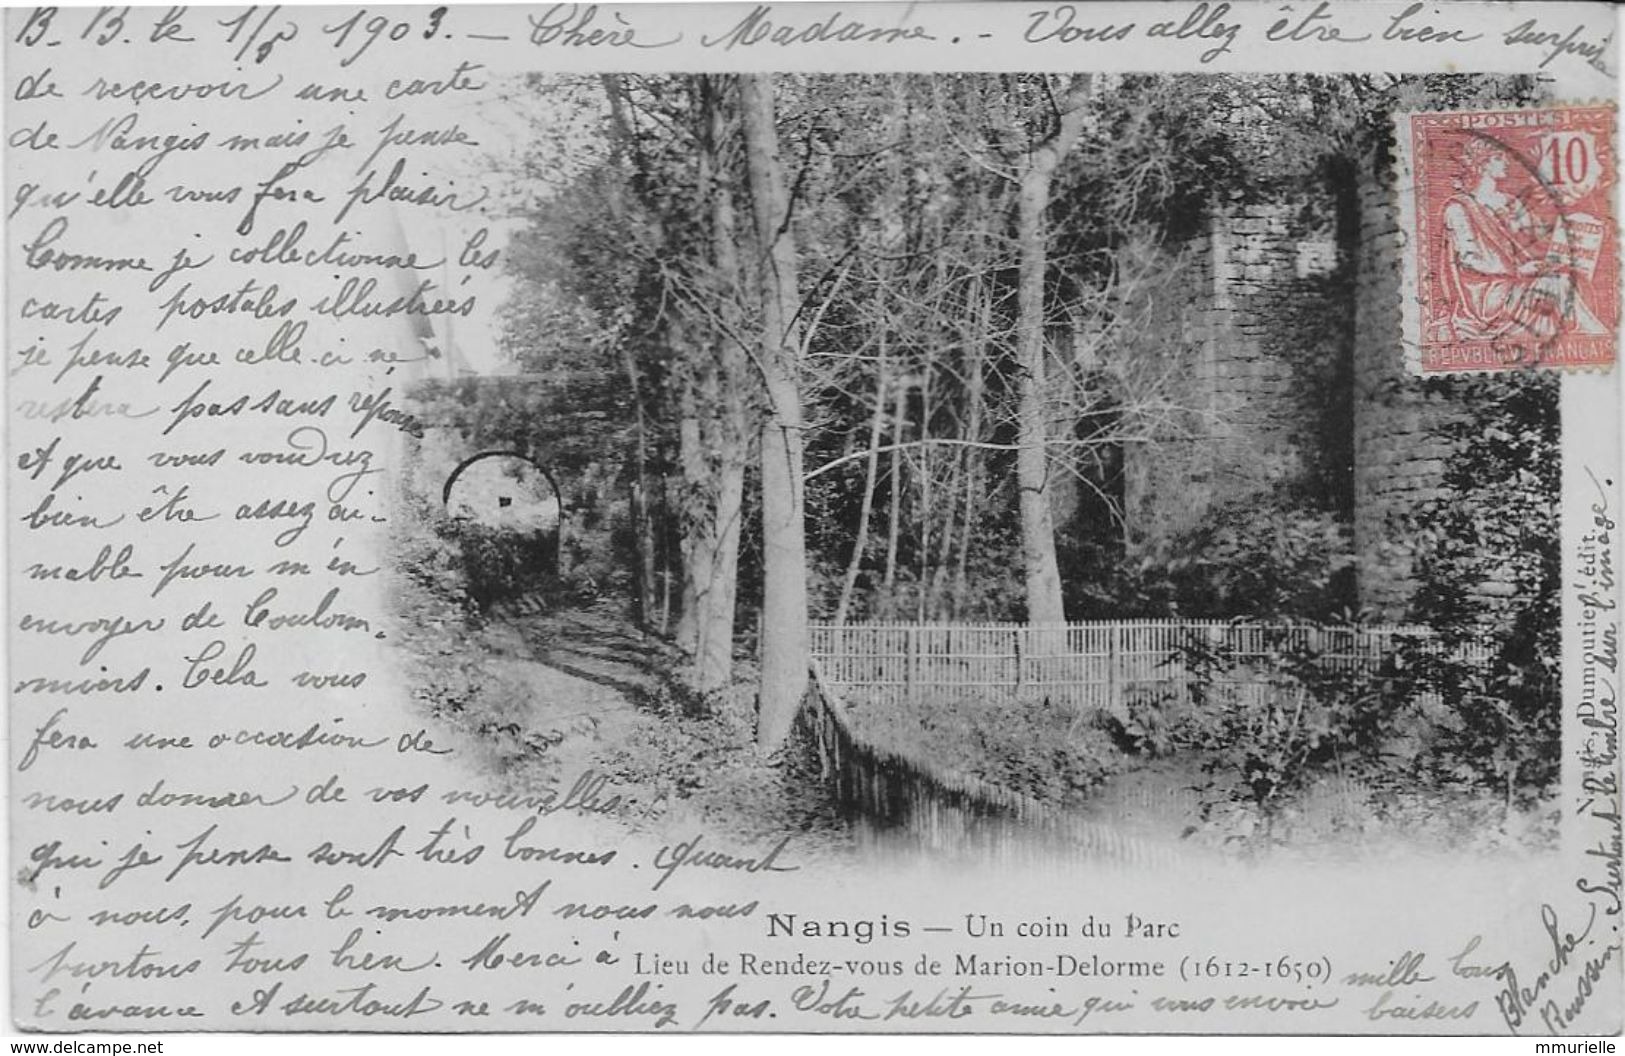 B. B. le 1/5 1903. — Chère Madame. - Vous allez être bien surprise
de recevoir une carte
de Nangis mais je pense
qu'elle vous fera plaisir.
Comme je collectionne les
cartes postales illustrées
je pense que celle-ci ne
restera pas sans réponse
et que vous voudrez
bien être assez ai-
mable pour m'en
envoyer de Coulom-
miers. Cela vous
fera une occasion de
nous donner de vos nouvelles
qui je pense sont très bonnes. Quant
à nous, pour le moment nous nous
portons tous bien. Merci à
l'avance et surtout ne m'oubliez pas. Votre petite amie qui vous envoie
mille bons
baisers
Blanche
Roussin. Surtout le timbre sur l'image.
Nangis — Un coin du Parc
Lieu de Rendez-vous de Marion-Delorme (1612-1650)
Dumoutiel, édit.
POSTES
10
REPVBLIQUE FRANÇAISE
www.delcampe.net
mmurielle